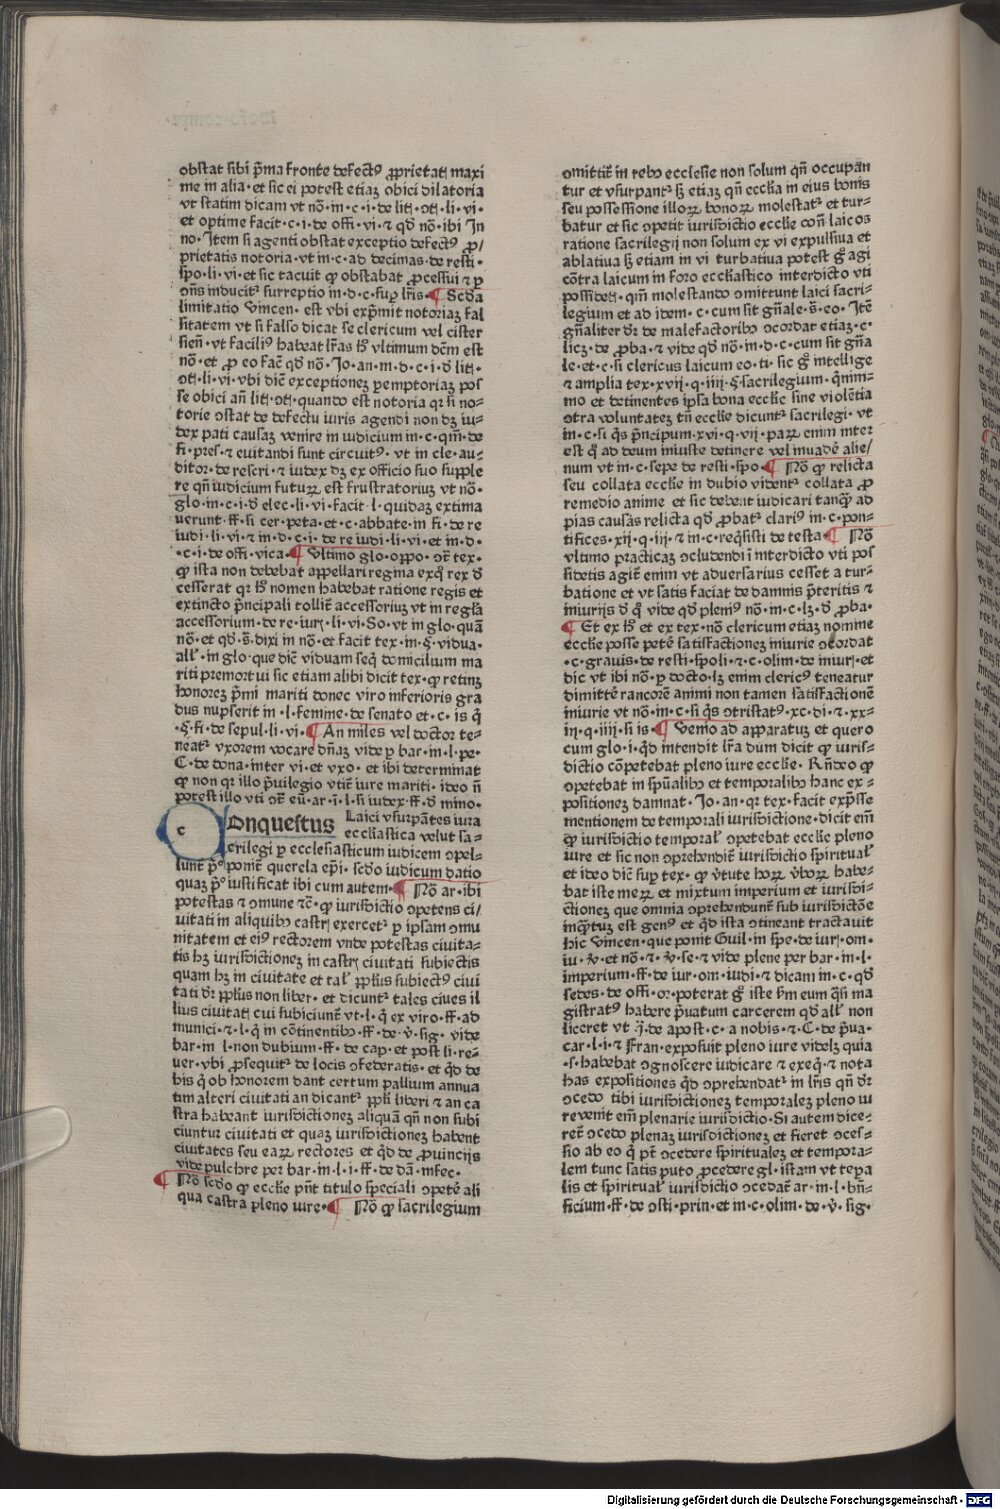 obstat sibi p̃ma fronte defectꝰ ꝓprietatꝭ maxi
me in alia·et sic ei potest etiaꝫ obici dilatoria
vt statim dicam vt nõ·in·c·i·de litꝭ·ↄtꝭ·li·vi·
et optime facit·c·i·de offi·vi·⁊ qd̕ nõ·ibi In
no·Item si agenti obstat exceptio defectꝰ ꝓ/
prietatis notoria·vt in·c·ad decimas·de resti·
spo·li·vi·et sic tacuit ꝙ obstabat ꝓcessui ⁊ ꝑ
ↄñs inducitᷣ surreptio in·d·c·suꝑ lr̃is· ¶ Scd̕a
limitatio Vincen·est vbi exp̃mit notoriaꝫ fal
sitatem vt si falso dicat se clericum vel cister
sieñ·vt faciliꝰ habeat lr̃as hꝰ vltimum dc̃m est
nõ·et ꝓ eo fac̃ qd̕ nõ·Jo·an·in·d·c·i·d̕ litꝭ·
ↄtꝭ·li·vi·vbi dic̃ exceptioneꝫ ꝑemptoriaꝫ pos
se obici añ litꝭ·ↄtꝭ·quando est notoria qꝛ si no-
torie ↄstat de defectu iuris agendi non dꝫ iu-
dex pati causaꝫ venire in iudicium in·c·qm̃·de
fi·pres·⁊ euitandi sunt circuitꝰ·vt in cle·au-
ditor·de rescri·⁊ iudex dꝫ ex officio suo supple
re qñ iudicium futuꝝ est frustratoriuꝫ vt nõ·
glo·in·c·i·d̕ elec·li·vi·facit·l·quidaꝫ extima
uerunt·ff·si cer·peta·et·c·abbate·in fi·de re
iudi·li·vi·⁊ in·d·c·i·de re iudi·li·vi·et in·d·
·c·i·de offi·vica· ¶ Vltimo glo·oppo·ↄ̃ tex·
ꝙ ista non debebat appellari regina exq̊ rex d̕
cesserat qꝛ hꝰ nomen habebat ratione regis et
extincto p̃ncipali tollit̃ accessoriuꝫ vt in regl̕a
accessorium·de re·iurꝭ·li·vi·So·vt in glo·quã
nõ·et qd̕·s̃·dixi in nõ·et facit tex·in·§·vidua·
all̕·in glo·que dic̃ viduam seqͥ domicilium ma
riti premortui sic etiam alibi dicit tex·ꝙ retinꝫ
honoreꝫ p̃mi mariti donec viro inferioris gra
dus nupserit in·l·femine·de senato·et·c·is q̊
·§·fi·de sepul·li·vi· ¶ An miles vel doctor te-
neatᷣ vxorem vocare dñaꝫ vide ꝑ bar·in·l·pe·
C·de dona·inter vi·et vxo·et ibi determinat
ꝙ non qꝛ illo p̃uilegio vtit̃ iure mariti·ideo ñ
potest illo vti ↄ̃ eũ·ar·i·l·si iudex·ff·d̕ mino·
cOnquestus Laici vsurpãtes iura
eccl̕iastica velut sa-
crilegi ꝑ ecclesiasticum iudicem ↄpel-
lunt p̊ ponit̃ querela ep̃i·scd̕o iudicum datio
quaꝫ p̊ iustificat ibi cum autem· ¶ Nõ ar·ibi
potestas ⁊ ↄmune ⁊c̃·ꝙ iurisdictio ↄpetens ci/
uitati in aliquibꝰ castrꝭ exercetᷣ ꝑ ipsam ↄmu
nitatem et eiꝰ rectorem vnde potestas ciuita-
tis hꝫ iurisdictioneꝫ in castrꝭ ciuitati subiectis
quam hꝫ in ciuitate et tal̕ ꝓpl̕us subiectꝰ ciui
tati dr̃ ꝓpl̕us non liber·et dicuntᷣ tales ciues il
lius ciuitatꝭ cui subiciunt̃ vt·l·q̊ ex viro·ff·ad
munici·⁊·l·q̊ in cõtinentibꝰ·ff·de·v̕·sig·vide
bar·in l·non dubium·ff·de cap·et post li·re-
uer·vbi ꝓsequitᷣ de locis ↄfederatis·et qd̕ de
bis q̊ ob honorem dant certum pallium annua
tim alteri ciuitati an dicantᷣ ꝓpl̕i liberi ⁊ an ca
stra habeant iurisdictioneꝫ aliquã qñ non subi
ciuntur ciuitati et quaꝫ iurisdictioneꝫ habent
ciuitates seu eaꝝ rectores et qd̕ de ꝓuincijs
vide pulchre per bar·in·l·i·ff·de dã·infec·
¶ Nõ scd̕o ꝙ eccl̕ie pñt titulo speciali ↄpetẽ ali
qua castra pleno iure· ¶ Nõ ꝙ sacrilegium
omittit̃ in rebꝰ ecclesie non solum qñ occupan
tur et vsurpantᷣ sꝫ etiaꝫ qñ eccl̕ia in eius bonis
seu possessione illoꝝ bonoꝝ molestatᷣ et tur-
batur et sic ↄpetit iurisdictio eccl̕ie cõñ laicos
ratione sacrilegij non solum ex vi expulsiua et
ablatiua sꝫ etiam in vi turbatiua potest g̊ agi
cõtra laicum in foro eccl̕iastico interdicto vti
possidetꝭ·qm̃ molestando ↄmittunt laici sacri-
legium et ad idem·c·cum sit gñale·s̃·eo·Itẽ
gñaliter dr̃ de malefactoribꝰ ↄcordat etiaꝫ·c·
licꝫ·de ꝓba·⁊ vide qd̕ nõ·in·d·c·cum sit gña
le·et·c·si clericus laicum eo·ti·sic g̊ intellige
⁊ amplia tex·xvij·q·iiij·§·sacrilegium·q̊nim-
mo et detinentes ipsa bona eccl̕ie sine violẽtia
ↄtra voluntateꝫ tñ eccl̕ie dicuntᷣ sacrilegi·vt
in·c·si q̊s p̃ncipum·xvi·q·vij·paꝝ enim inter
est q̊ ad deum iniuste detinere vel inuadẽ alie/
num vt in·c·sepe·de resti·spo· ¶ Nõ ꝙ relicta
seu collata eccl̕ie in dubio videntᷣ collata ꝓ
remedio anime et sic debent iudicari tanq̃ ad
pias causas relicta qd̕ ꝓbatᷣ clariꝰ in·c·pon-
tifices·xij·q·iij·⁊ in·c·reqͥsisti de testa· ¶ Nõ
vltimo practicaꝫ ↄcludendi ĩ interdicto vti pos
sidetis agit̃ enim vt aduersarius cesset a tur-
batione et vt satis faciat de damnis p̃teritis ⁊
iniurijs d̕ q̊ vide qd̕ pleniꝰ nõ·in·c·lꝫ·d̕ ꝓba·
¶ Et ex hꝰ et ex tex·nõ clericum etiaꝫ nomine
eccl̕ie posse petẽ satisfactioneꝫ iniurie ↄcordat
·c·grauis·de resti·spoli·⁊·c·olim·de iniurꝭ·et
dic vt ibi nõ·ꝑ docto·lꝫ enim clericꝰ teneatur
dimittẽ rancorẽ animi non tamen satisfactionẽ
iniurie vt nõ·in·c·si q̊s ↄtristatꝰ·xc·di·⁊·xx-
iij·q·iiij·si is· ¶ Venio ad apparatuꝫ et quero
cum glo·i·qͥd intendit lr̃a dum dicit ꝙ iuris-
dictio cõpetebat pleno iure eccl̕ie·Rñdeo ꝙ
ↄpetebat in spũalibꝰ et temporalibꝰ hanc ex-
positioneꝫ damnat·Jo·an·qꝛ tex·facit exp̃sse
mentionem de temporali iurisdictione·dicit em̃
ꝙ iurisdictio temporal̕ ↄpetebat eccl̕ie pleno
iure et sic non ↄprehendit̃ iurisdictio spiritual̕
et ideo dic̃ suꝑ tex·ꝙ v̕tute hoꝝ v̕boꝝ habe-
bat iste meꝝ et mixtum imperium et iurisdi-
ctioneꝫ que omnia ↄprehendunt̃ sub iurisdictõe
inqͣtuꝫ est genꝰ et qd̕ ista ↄtineant tractauit
hic Vincen·que ponit Guil·in spe·de iurꝭ·om·
iu·v̕·et nõ·⁊·v̕·se·⁊ vide plene per bar·in·l·
imperium·ff·de iur·om·iudi·⁊ dicam in·c·qd̕
sedes·de offi·or·poterat g̊ iste sm̃ eum q̊si ma
gistratꝰ habere p̃uatum carcerem qd̕ all̕ non
liceret vt·ɉ·de apost·c·a nobis·⁊·C·de p̃ua·
car·l·i·⁊ Fran·exposuit pleno iure videlꝫ quia
·s·habebat ↄgnoscere iudicare ⁊ exeqͥ·⁊ nota
has expositiones qd̕ ↄprehendat̃ in lr̃is qñ dr̃
ↄcedo tibi iurisdictioneꝫ temporaleꝫ pleno iu
re venit em̃ plenarie iurisdictio·Si autem dice-
ret̃ ↄcedo plenaꝫ iurisdictioneꝫ et fieret ↄces-
sio ab eo q̊ pt̃ ↄcedere spiritualeꝫ et tempora-
lem tunc satis puto ꝓcedere gl·istam vt tꝑa
lis et spiritual̕ iurisdictio ↄcedat̃ ar·in·l·bñ-
ficium·ff·de ↄsti·prin·et in·c·olim·de·v̕·sig·
Digitalisierung gefördert durch die Deutsche Forschungsgemeinschaft - DFG